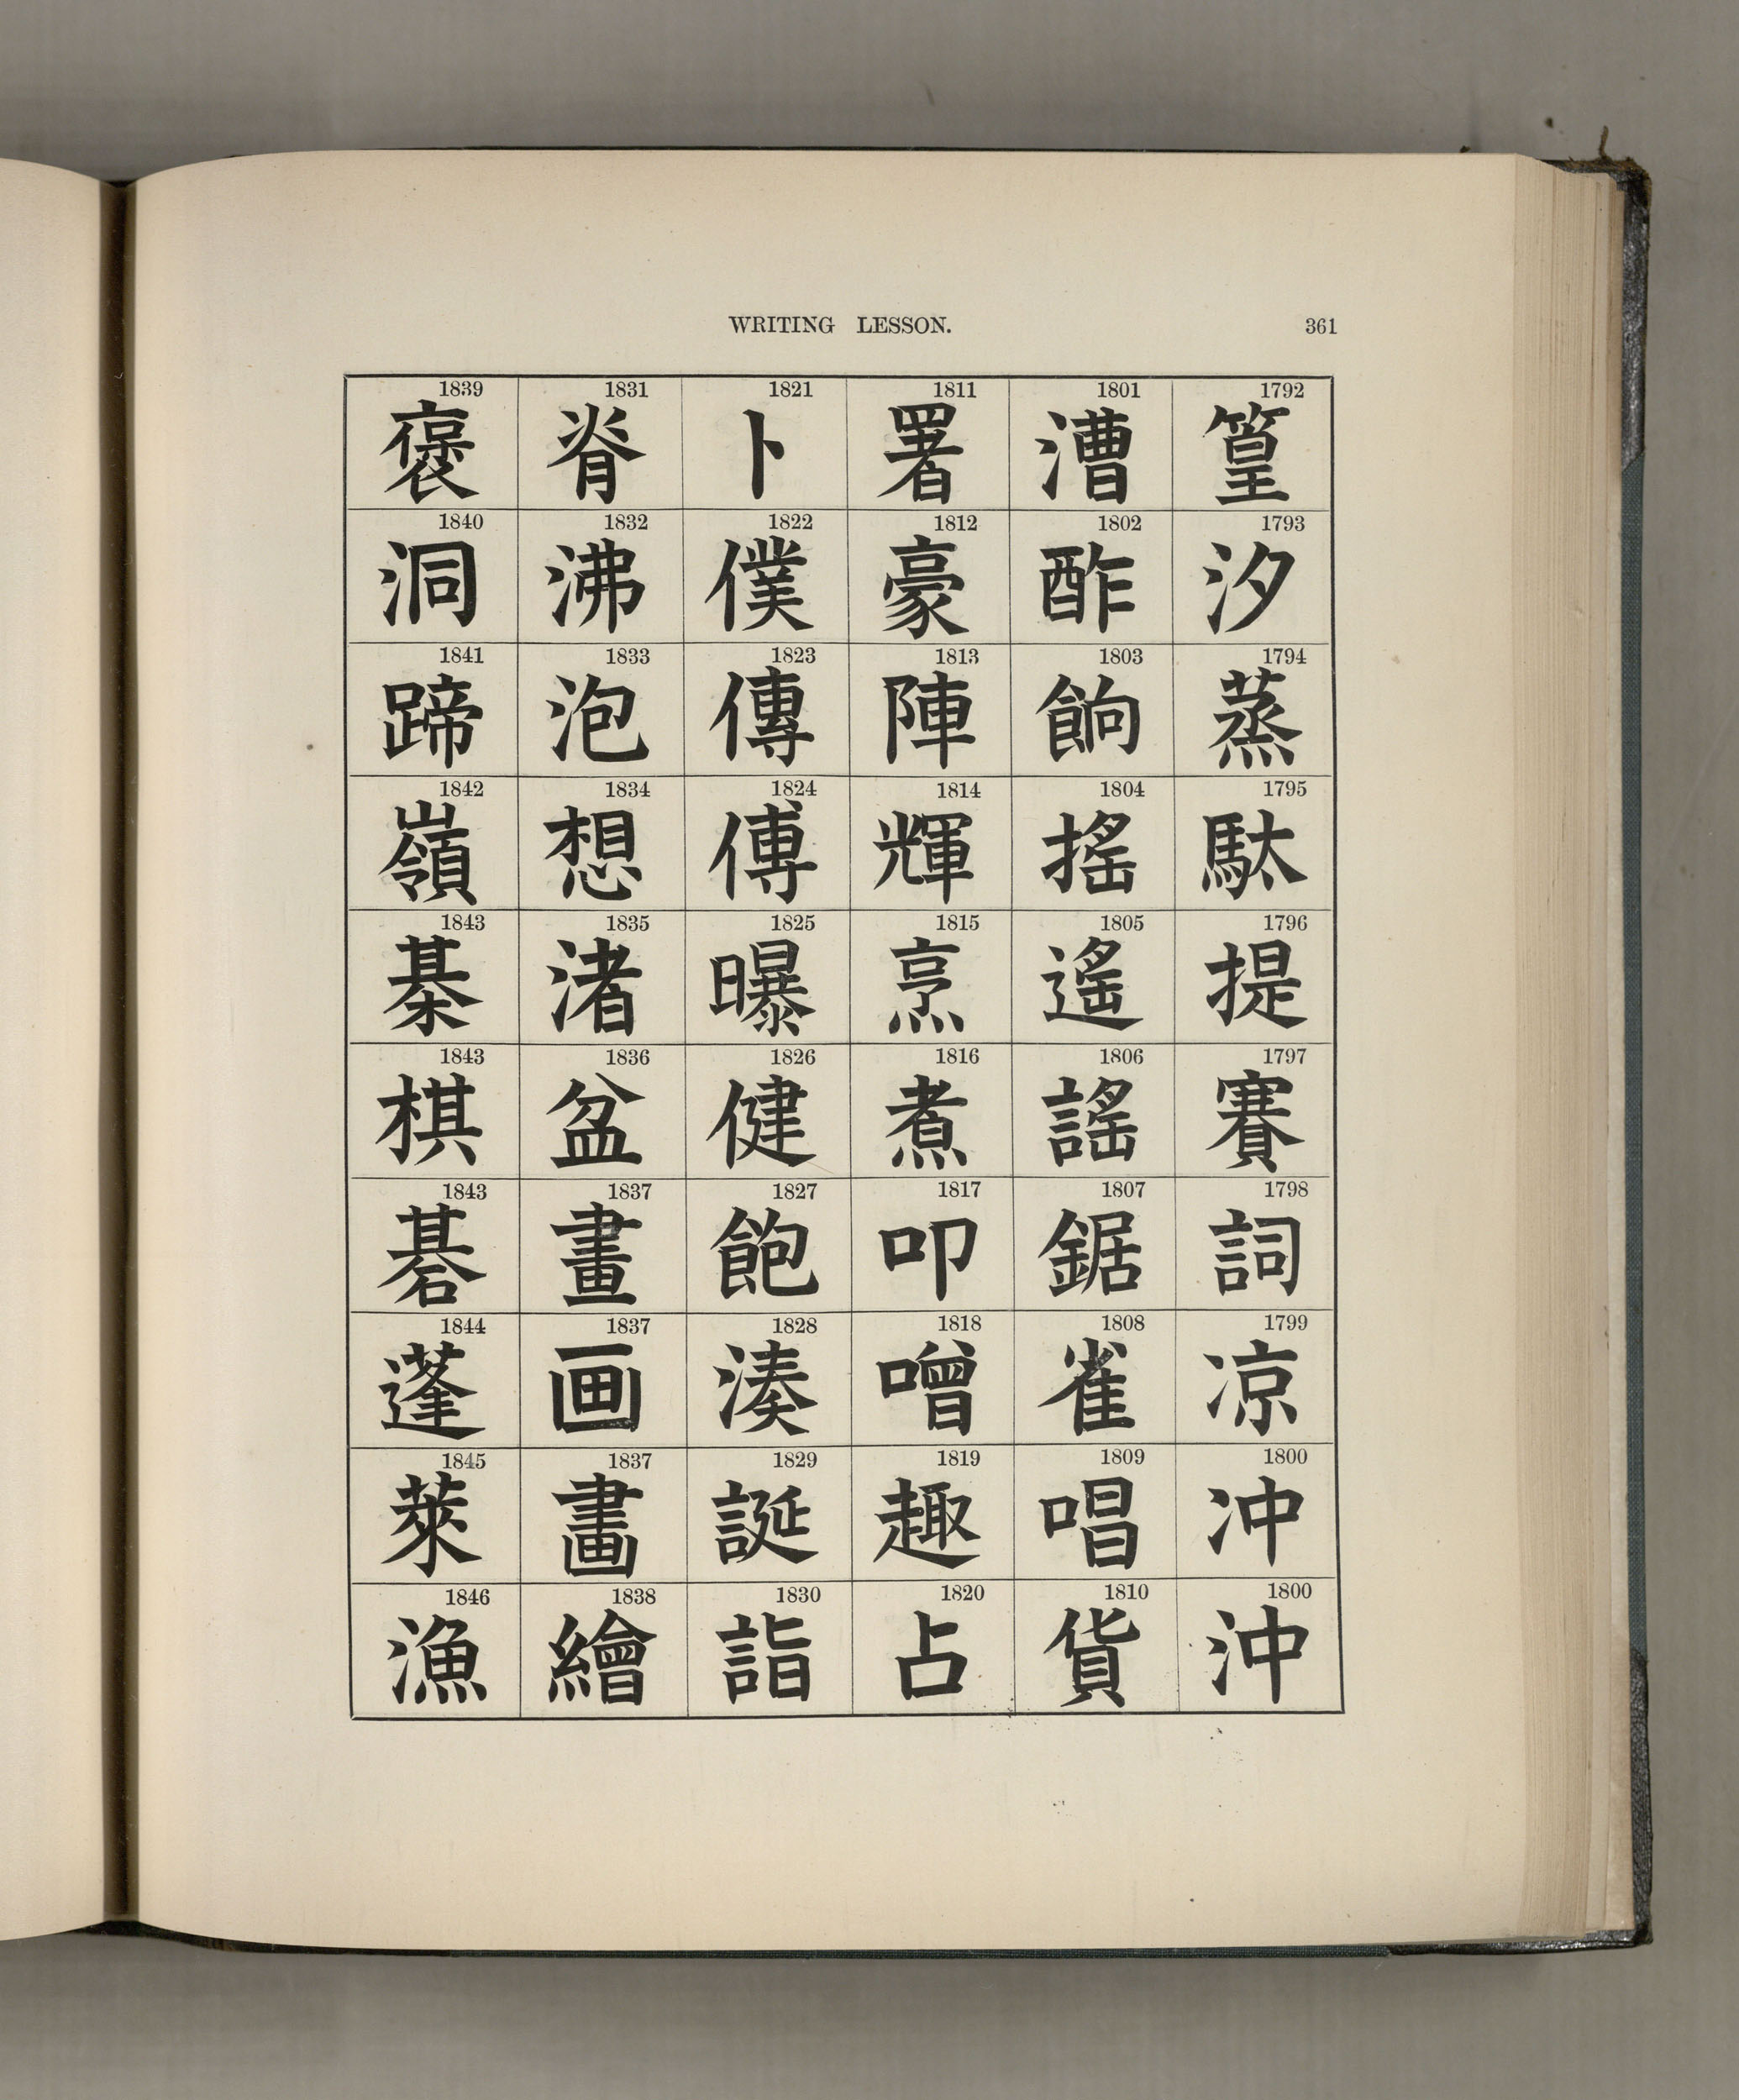 WRITING LESSON. 361
1792 篁
1793 汐
1794 蒸
1795 駄
1796 提
1797 賽
1798 詞
1799 凉
1800 冲
1800 沖
1801 漕
1802 酢
1803 餉
1804 搖
1805 遙
1806 謠
1807 鋸
1808 雀
1809 唱
1810 貨
1811 署
1812 豪
1813 陣
1814 輝
1815 烹
1816 煮
1817 叩
1818 噌
1819 趣
1820 占
1821 卜
1822 僕
1823 傳
1824 傅
1825 曝
1826 健
1827 飽
1828 湊
1829 誕
1830 詣
1831 脊
1832 沸
1833 泡
1834 想
1835 渚
1836 盆
1837 畫
1837 画
1837 畵
1838 繪
1839 褒
1840 洞
1841 蹄
1842 嶺
1843 棊
1843 棋
1843 碁
1844 蓬
1845 萊
1846 漁